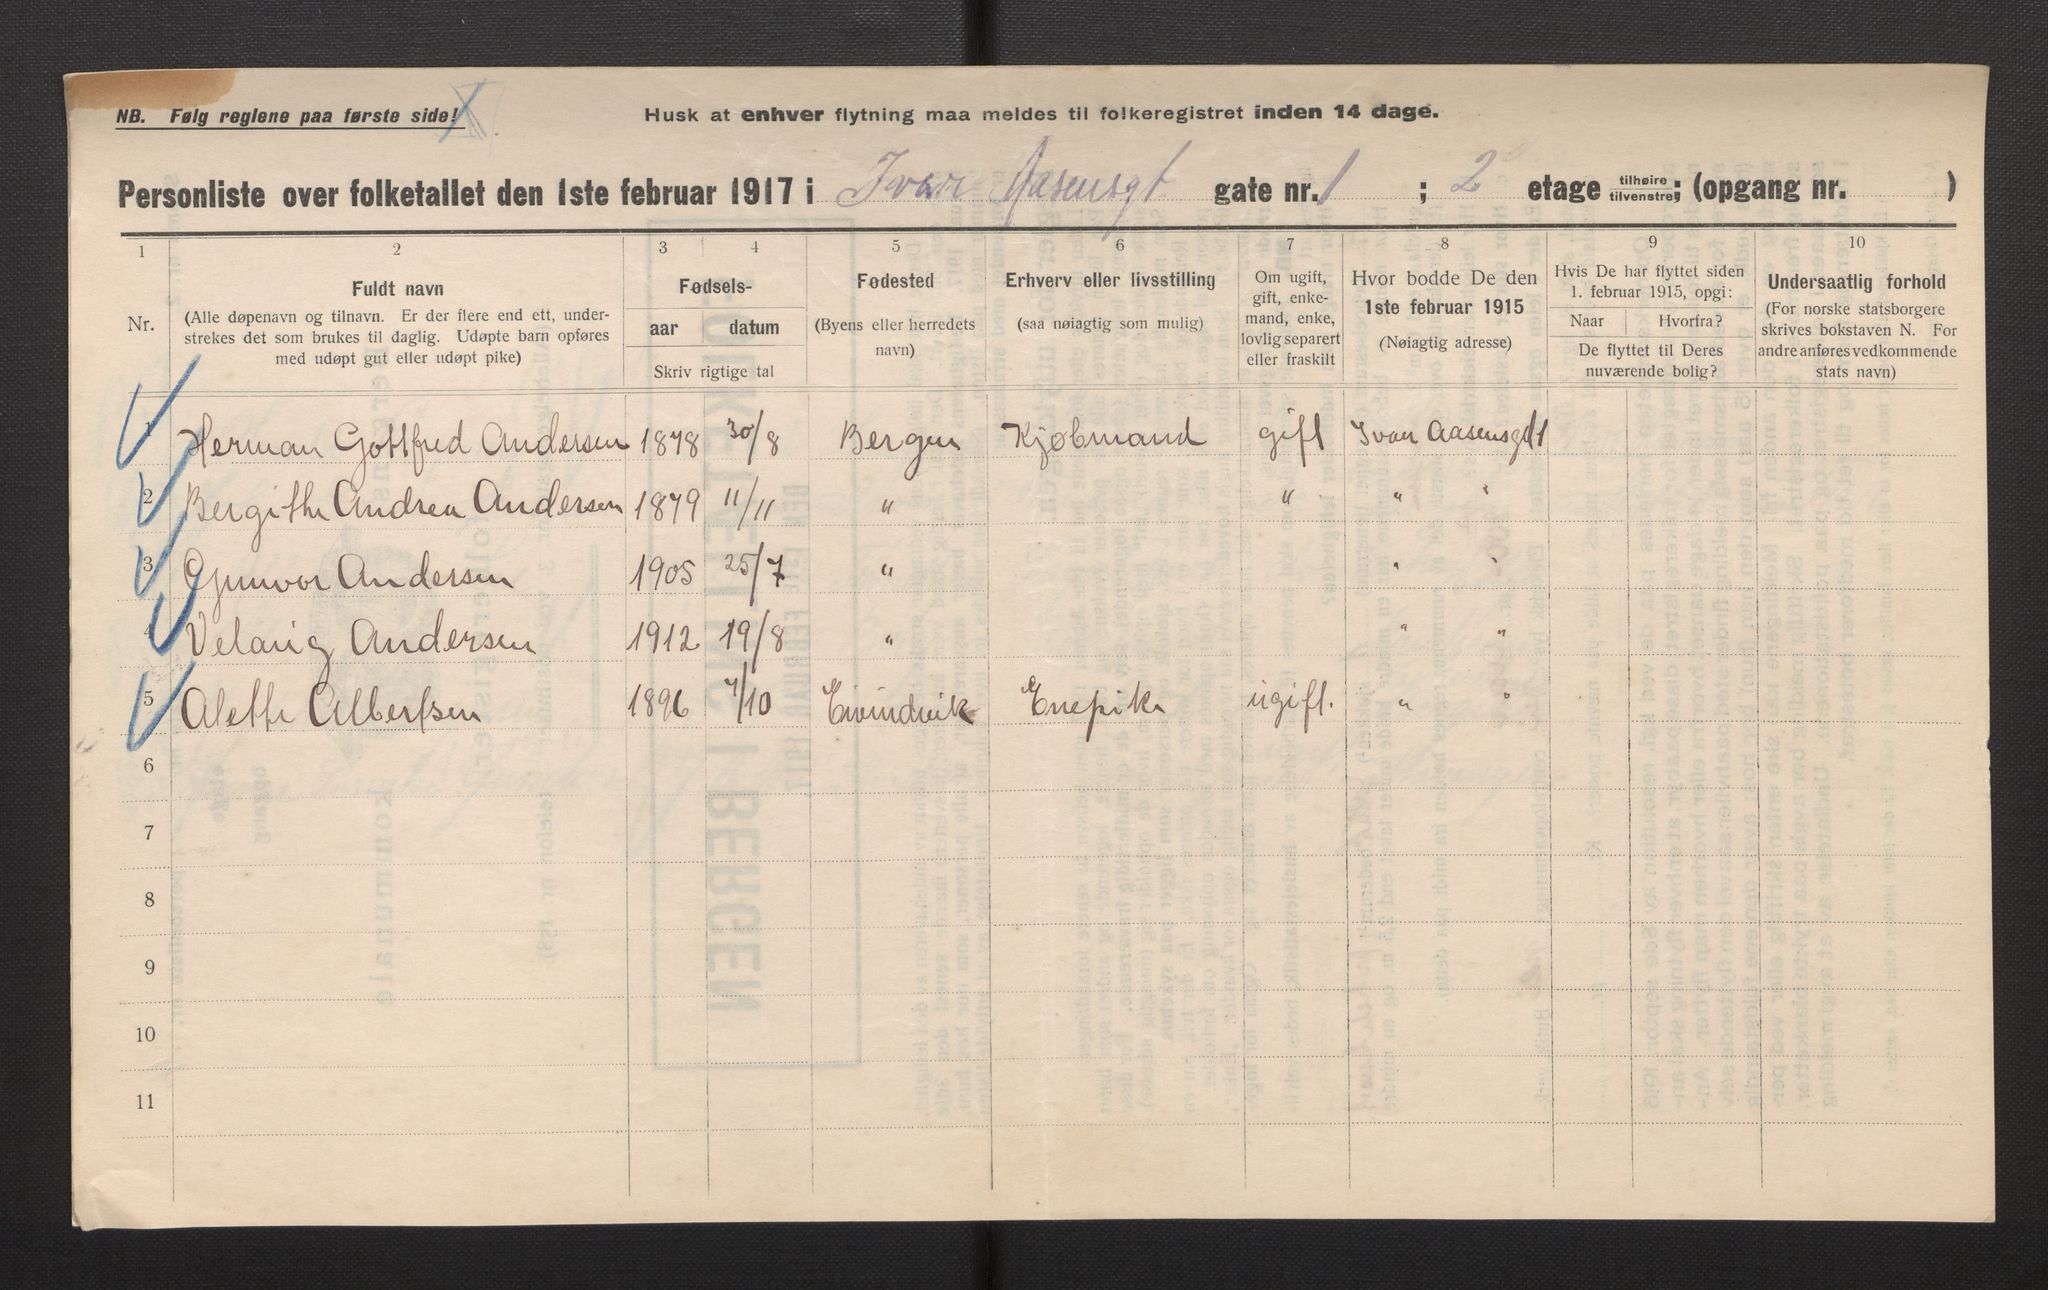 NB. Følg reglene paa første side!
Husk at enhver flytning maa meldes til folkeregistret inden 14 dage.
Personliste over folketallet den 1ste februar 1917 i Ivar Aasensgt gate nr. 1 ; 2 etage tilhøire tilvenstre; (opgang nr. )
1 2 3 4 5 6 7 8 9 10
Nr.
Fuldt navn
(Alle døpenavn og tilnavn. Er der flere end ett, under-
strekes det som brukes til daglig. Udøpte barn opføres
med udøpt gut eller udøpt pike)
Fødsels-
aar datum
Skriv rigtige tal
Fødested
(Byens eller herredets
navn)
Erhverv eller livsstilling
(saa nøiagtig som mulig)
Om ugift,
gift, enke-
mand, enke,
lovlig separert
eller fraskilt
Hvor bodde De den
1ste februar 1915
(Nøiagtig adresse)
Hvis De har flyttet siden
1. februar 1915, opgi:
Naar Hvorfra?
De flyttet til Deres
nuværende bolig?
Undersaatlig forhold
(For norske statsborgere
skrives bokstaven N. For
andre anføres vedkommende
stats navn)
1 Herman Gottfred Andersen 1878 30/8 Bergen Kjøbmand gift Ivar Aasensgt 1
2 Bergithe Andrea Andersen 1879 11/11 " " " "
3 Gunvor Andersen 1905 25/7 " " "
4 Andersen 1912 19/8 " " "
5 Alette Albertsen 1896 7/10 Eivindvik Enepike ugift. " "
6
7
8
9
10
11